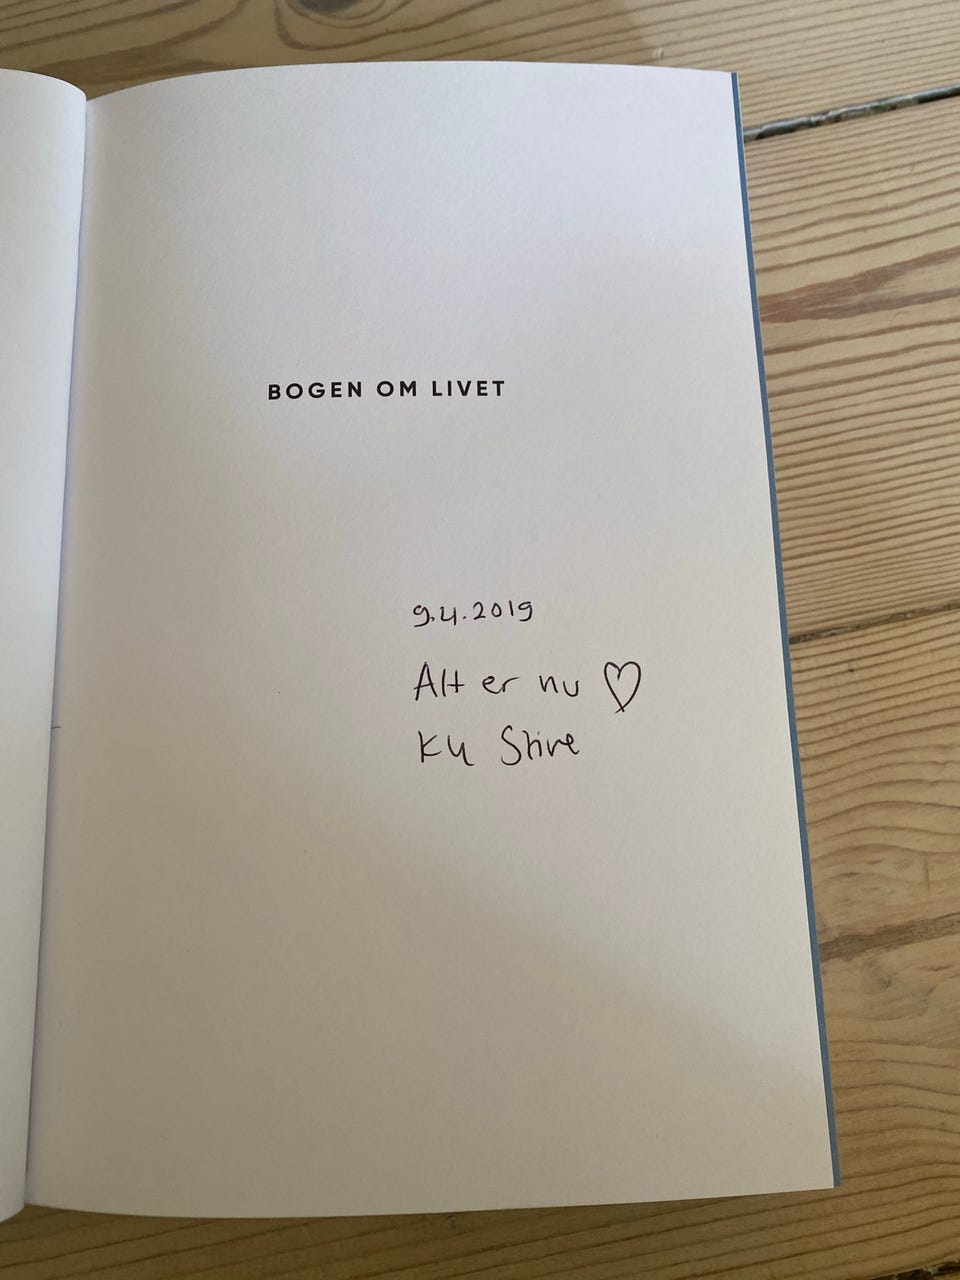 BOGEN OM LIVET
9.4.2019
Alt er nu ♡
KH Stine